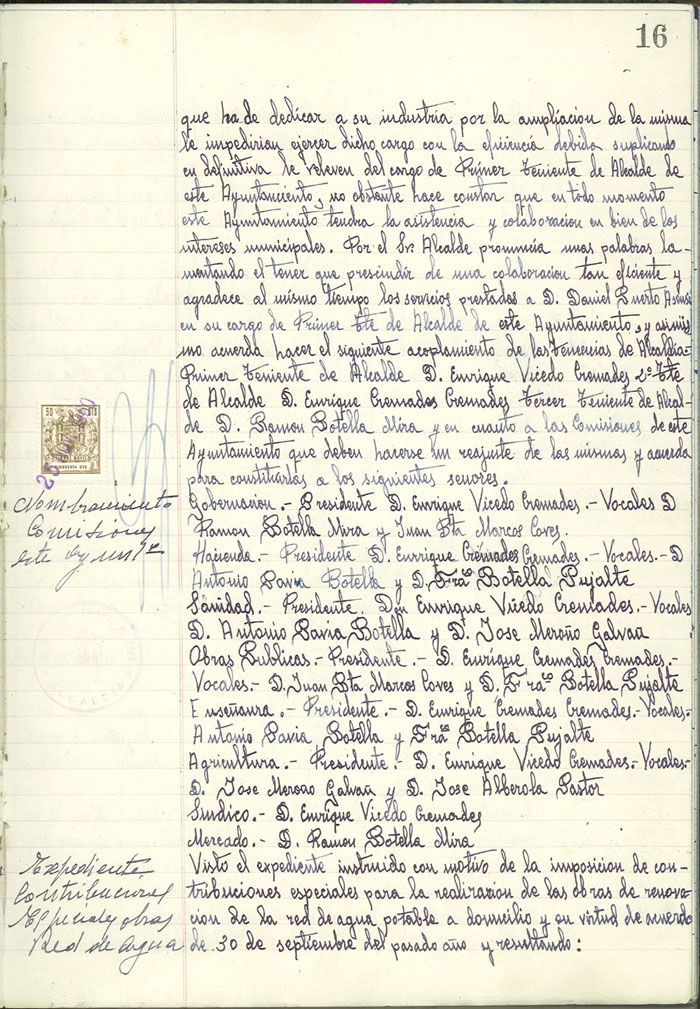 16
que ha de dedicar a su industria por la ampliacion de la misma
le impedirian ejercer dicho cargo con la eficiencia debida suplicando
en definitiva le releven del cargo de Primer Teniente de Alcalde de
este Ayuntamiento, no obstante hace constar que en todo momento
este Ayuntamiento tendra la asistencia y colaboracion en bien de los
intereses municipales. Por el Sr. Alcalde pronuncia unas palabras la-
mentando el tener que prescindir de una colaboracion tan eficiente y
agradece al mismo tiempo los servicios prestados a D. Daniel Puerto Asensi
en su cargo de Primer Tte de Alcalde de este Ayuntamiento, y asimis
mo acuerda hacer el siguiente acoplamiento de las tenencias de Alcaldia-
Primer Teniente de Alcalde D. Enrique Vicedo Cremades 2º Tte
de Alcalde D. Enrique Cremades Cremades Tercer Teniente de Alcal-
de D. Ramon Botella Mira y en cuanto a las Comisiones de este
Ayuntamiento que deben hacerse un reajuste de las mismas y acuerda
para constituirlas a los siguientes señores.
50 CTS
Nombramiento
Comisiones
este Ayunt
Gobernacion.- Presidente D. Enrique Vicedo Cremades.- Vocales D
Ramon Botella Mira y Juan Bta Marcos Coves.
Hacienda.- Presidente D. Enrique Cremades Cremades.- Vocales.- D
Antonio Pavia Botella y D. Fraº Botella Pujalte
Sanidad.- Presidente. Don Enrique Vicedo Cremades.- Vocales
D. Antonio Pavia Botella y D. Jose Meroño Galvañ
Obras Publicas.- Presidente.- D. Enrique Cremades Cremades.-
Vocales.- D. Juan Bta Marcos Coves y D. Fraº Botella Pujalte
Enseñanza.- Presidente.- D. Enrique Cremades Cremades.- Vocales.-
Antonio Pavia Botella y Fraº Botella Pujalte
Agricultura.- Presidente.- D. Enrique Vicedo Cremades.- Vocales.-
D. Jose Meroño Galvañ y D. Jose Alberola Pastor
Sindico.- D. Enrique Vicedo Cremades
Mercado.- D. Ramon Botella Mira
Expediente
Contribuciones
Especiales obras
Red de Agua
Visto el expediente instruido con motivo de la imposicion de con-
tribuciones especiales para la realizacion de las obras de renova
cion de la red de agua potable a domicilio y en virtud de acuerdo
de 30 de septiembre del pasado año y resultando: